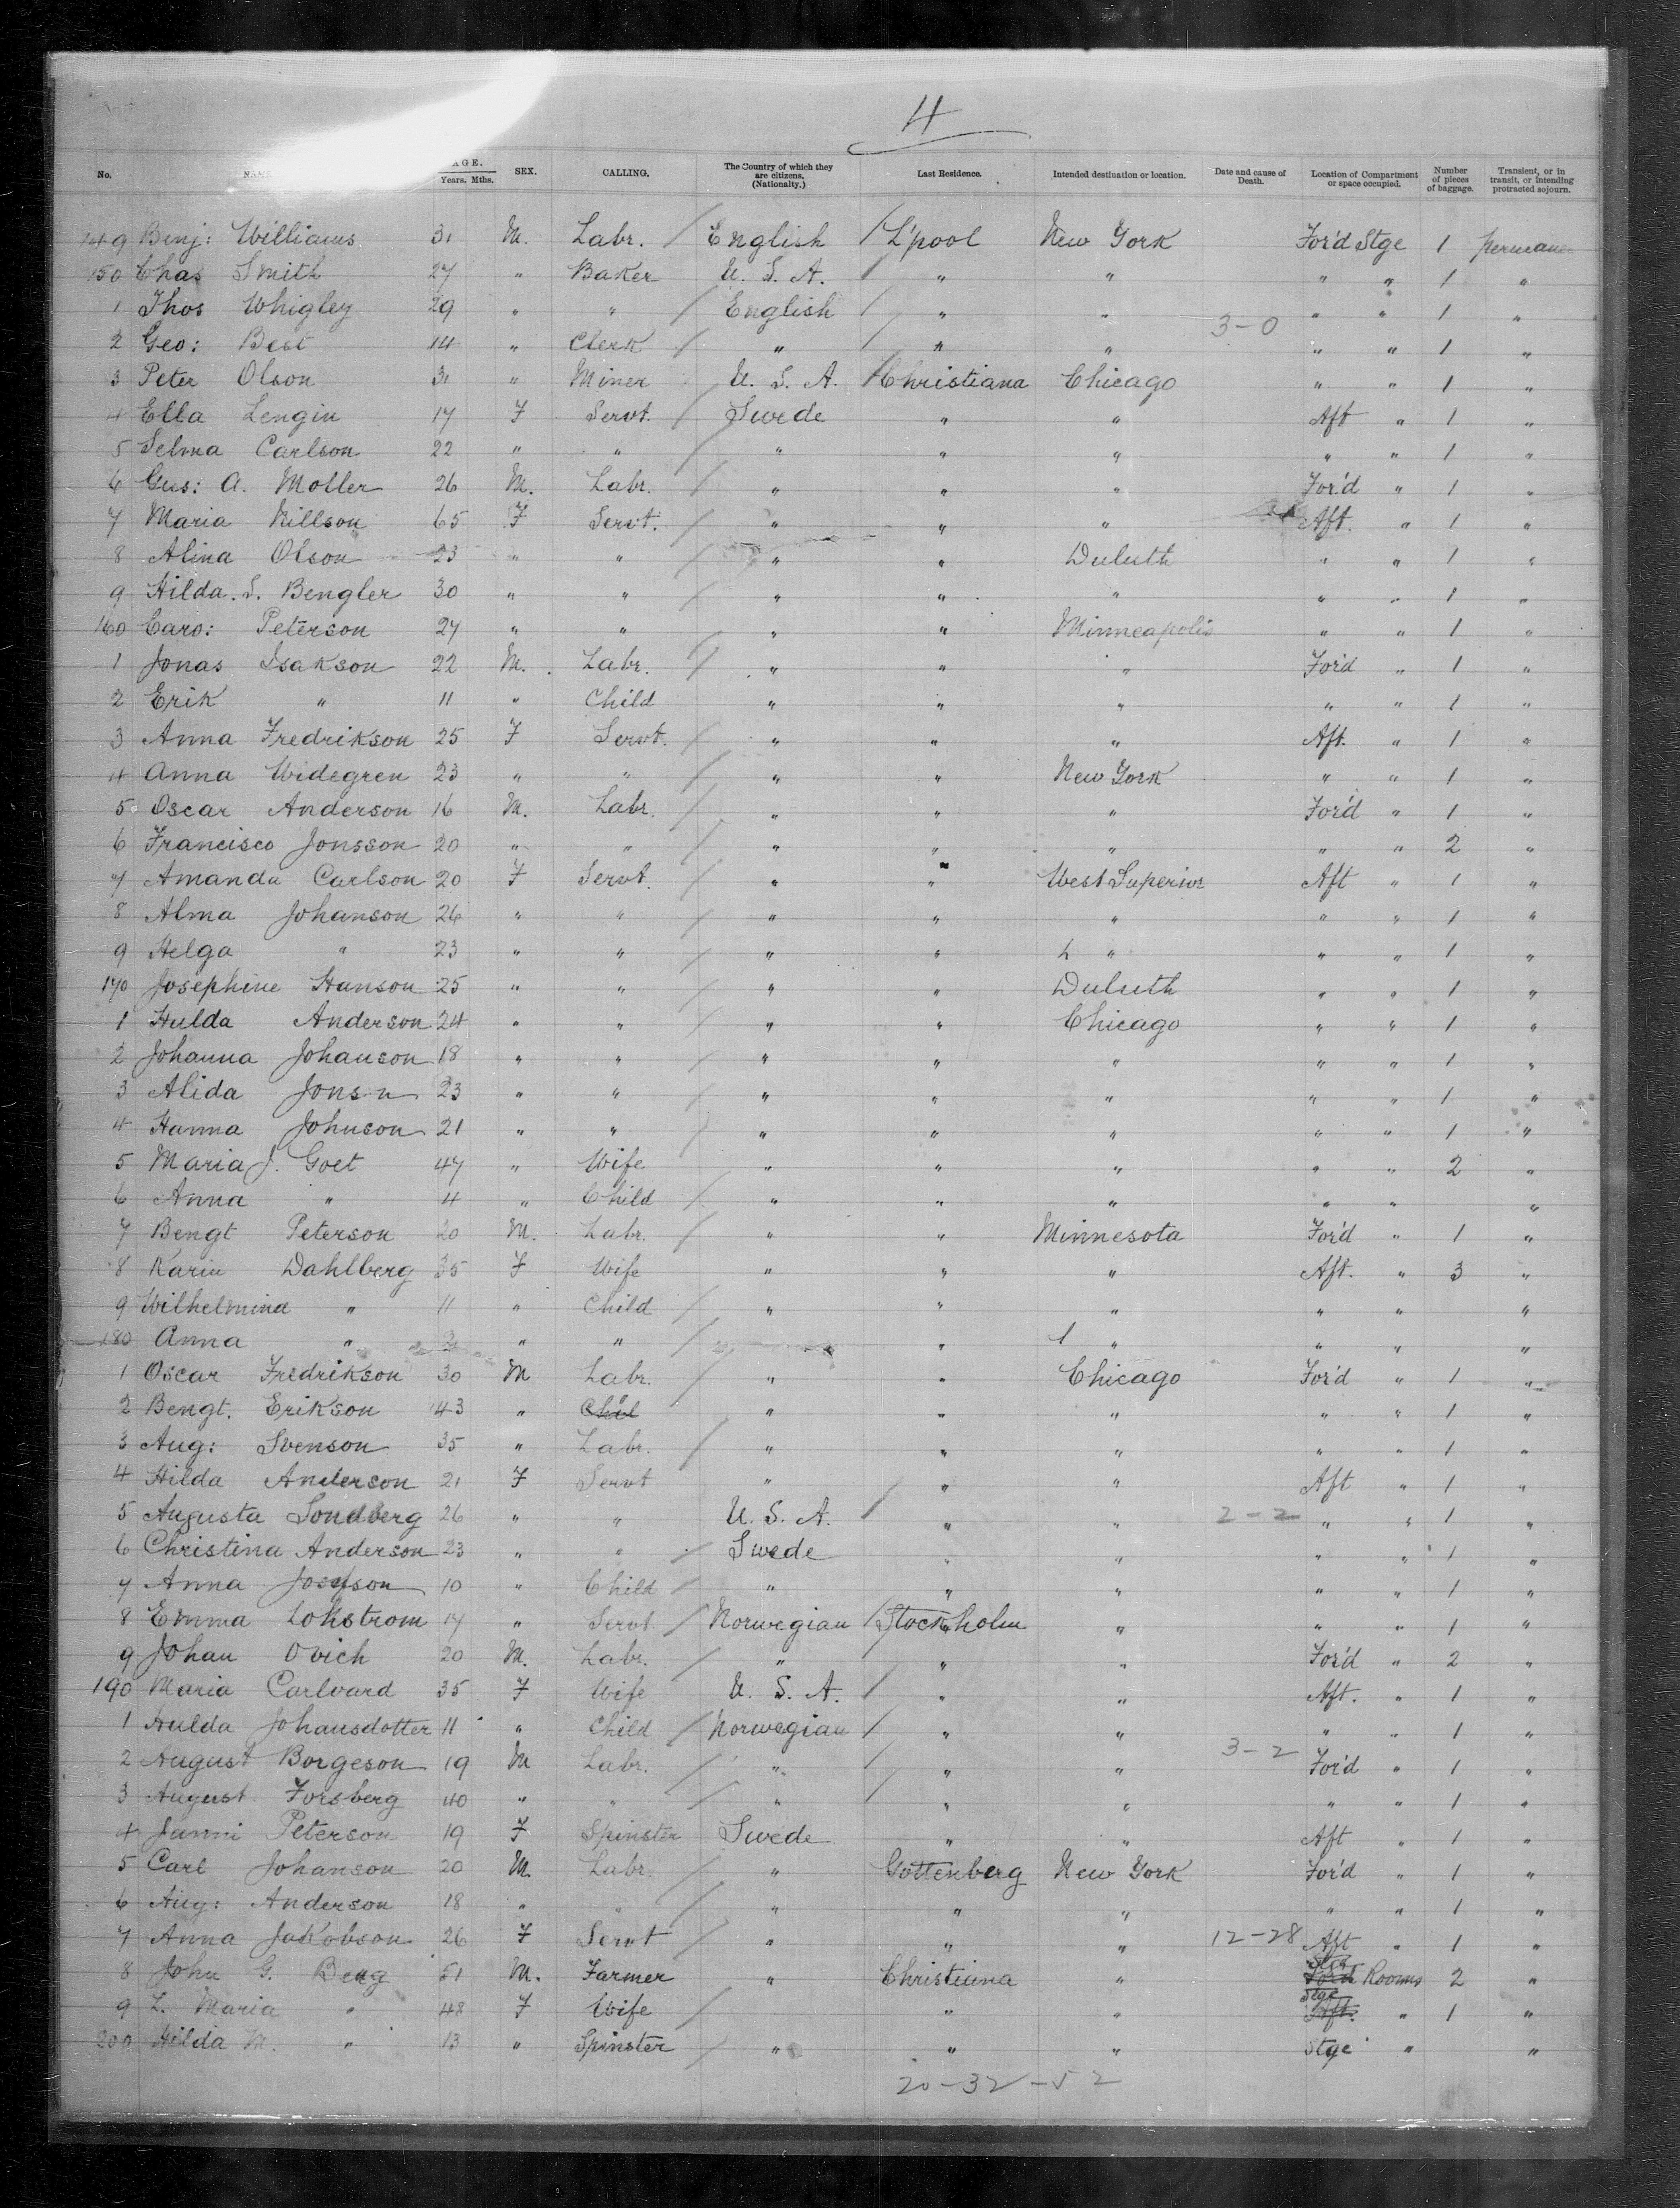 4
No. NAME AGE. Years. Mths. SEX. CALLING. The Country of which they are citizens. (Nationality.) Last Residence. Intended destination or location. Date and cause of Death. Location of Compartment or space occupied. Number of pieces of baggage. Transient, or in transit, or intending protracted sojourn.
149 Benj: Williams 31 M. Labr. / English / L'pool New York For'd Stge 1 permanen
150 Chas Smith 27 " Baker U. S. A. / " " " " 1 "
1 Thos Whigley 29 " " / English / " " " " 1 "
3-0
2 Geo: Best 14 " Clerk / " / " " " " 1 "
3 Peter Olson 31 " Miner U. S. A. / Christiana Chicago " " 1 "
4 Ella Lengin 17 F Servt. / Swede " " Aft " 1 "
5 Selma Carlson 22 " " / " " " " " 1 "
6 Gus: A. Moller 26 M. Labr. / " " " For'd " 1 "
7 Maria Nillson 65 F Servt. / " " " Aft. " 1 "
8 Alina Olson 23 " " / " " Duluth " " 1 "
9 Hilda. S. Bengler 30 " " / " " " " " 1 "
160 Caro: Peterson 27 " " / " " Minneapolis " " 1 "
1 Jonas Isakson 22 M. Labr. / " " " For'd " 1 "
2 Erik " 11 " Child " " " " " 1 "
3 Anna Fredrikson 25 F Servt. / " " " Aft. " 1 "
4 Anna Widegren 23 " " / " " New York " " 1 "
5 Oscar Anderson 16 M. Labr. / " " " For'd " 1 "
6 Francisco Jonsson 20 " " / " " " " " 2 "
7 Amanda Carlson 20 F Servt. / " " West Superior Aft " 1 "
8 Alma Johanson 26 " " / " " " " " 1 "
9 Helga " 23 " " / " " " " " 1 "
170 Josephine Hanson 25 " " / " " Duluth " " 1 "
1 Hulda Anderson 24 " " / " " Chicago " " 1 "
2 Johanna Johanson 18 " " / " " " " " 1 "
3 Alida Jons n 23 " " / " " " " " 1 "
4 Hanna Johnson 21 " " / " " " " " 1 "
5 Maria J. Goet 47 " Wife " " " " " 2 "
6 Anna " 4 " Child / " " " " " "
7 Bengt Peterson 20 M. Labr. / " " Minnesota For'd " 1 "
8 Karin Dahlberg 35 F Wife " " " Aft. " 3 "
9 Wilhelmina " 11 " Child / " " " " " "
180 Anna " " " / " " " " "
1 Oscar Fredrikson 30 M Labr. / " " Chicago For'd " 1 "
2 Bengt. Erikson 43 " Chil " " " " " " 1 "
3 Aug: Svenson 35 " Labr. / " " " " " 1 "
4 Hilda Anderson 21 F Servt " " " Aft " 1 "
5 Augusta Sondberg 26 " " U. S. A. / " " 2-2 " " 1 "
6 Christina Anderson 23 " " / Swede " " " " 1 "
7 Anna Josefson 10 " Child / " " " " " 1 "
8 Emma Lokstrom 17 " Servt / Norwegian / Stockholm " " " 1 "
9 Johan Ovich 20 M. Labr. / " / " " For'd " 2 "
190 Maria Carlvard 35 F Wife U. S. A. / " " Aft. " 1 "
1 Hulda Johansdotter 11 " Child / Norwegian / " " " " 1 "
3-2
2 August Borgeson 19 M Labr. / " / " " For'd " 1 "
3 August Forsberg 40 " " / " / " " " " 1 "
4 Janni Peterson 19 F Spinster Swede " " Aft " 1 "
5 Carl Johanson 20 M. Labr. / " Gottenberg New York For'd " 1 "
6 Aug: Anderson 18 " " / " " " " " 1 "
7 Anna Jakobson 26 F Servt / " " " 12-28 Aft " 1 "
8 John G. Berg 51 M. Farmer " Christiana " Stge For'd Rooms 2 "
9 L. Maria " 48 F Wife / " " Stge Aft. " 1 "
200 Hilda M. " 13 " Spinster / " " " Stge " "
20-32-52